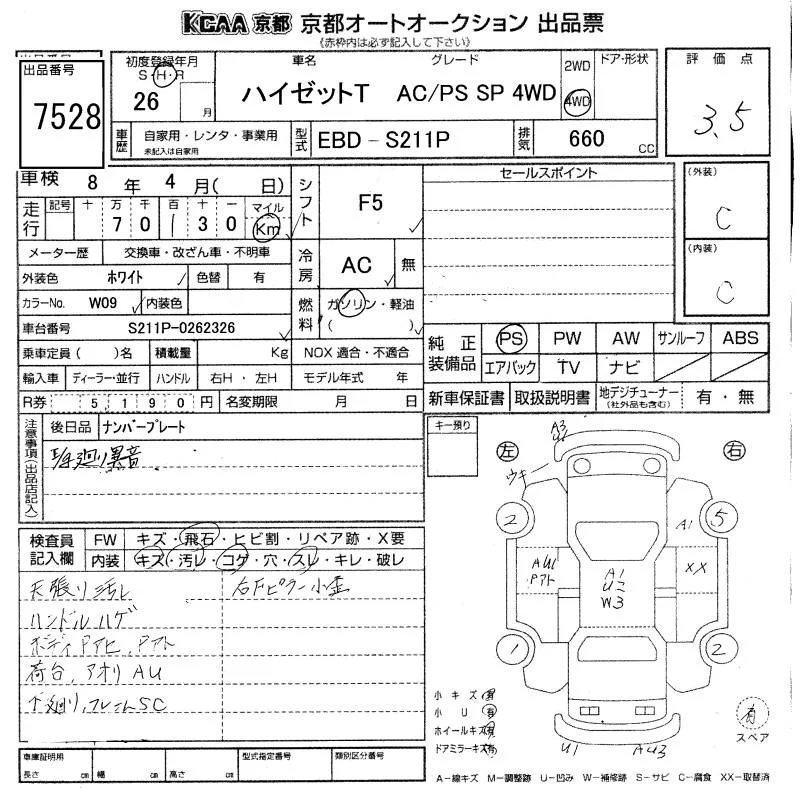 KCAA 京都 京都オートオークション 出品票
《赤枠内は必ず記入して下さい》
出品番号
7528
初度登録年月
S・H・R
26 月
車名 グレード
ハイゼットT AC/PS SP 4WD
2WD
4WD
ドア・形状
評価点
3.5
車歴 自家用・レンタ・事業用
未記入は自家用
型式 EBD－S211P
排気 660 CC
車検 8 年 4 月( 日)
走行 記号 十 万 千 百 十 一 マイル
7 0 1 3 0 Km
シフト F5
セールスポイント
(外装)
C
(内装)
C
メーター歴 交換車・改ざん車・不明車
冷房 AC 無
外装色 ホワイト 色替 有
カラーNo. W09 内装色
燃料 ガソリン・軽油
( )
車台番号 S211P-0262326
純正装備品 PS PW AW サンルーフ ABS
エアバック TV ナビ
乗車定員( )名 積載量 Kg NOX 適合・不適合
輸入車 ディーラー・並行 ハンドル 右H・左H モデル年式 年
R券 5,190円 名変期限 月 日
新車保証書 取扱説明書 地デジチューナー(社外品も含む) 有・無
注意事項(出品店記入)
後日品 ナンバープレート
廻り異音
キー預り
左 右
A3
U1
ウキ
2 5
A1
AU1
Pアト
A1
U2
W3
XX
1 2
検査員記入欄
FW キズ・飛石・ヒビ割・リペア跡・X要
内装 キズ・汚レ・コゲ・穴・スレ・キレ・破レ
天張り汚レ
右Fピラー小歪
ハンドルハゲ
ボディPアヒ、Pアト
荷台、アオリAU
下廻り、フレームSC
小キズ有
小U有
ホイールキズ有
ドアミラーキズ有
U1 AU3
有
スペア
車庫証明用
長さ cm 幅 cm 高さ cm
型式指定番号
類別区分番号
A－線キズ M－調整跡 U－凹み W－補修跡 S－サビ C－腐食 XX－取替済